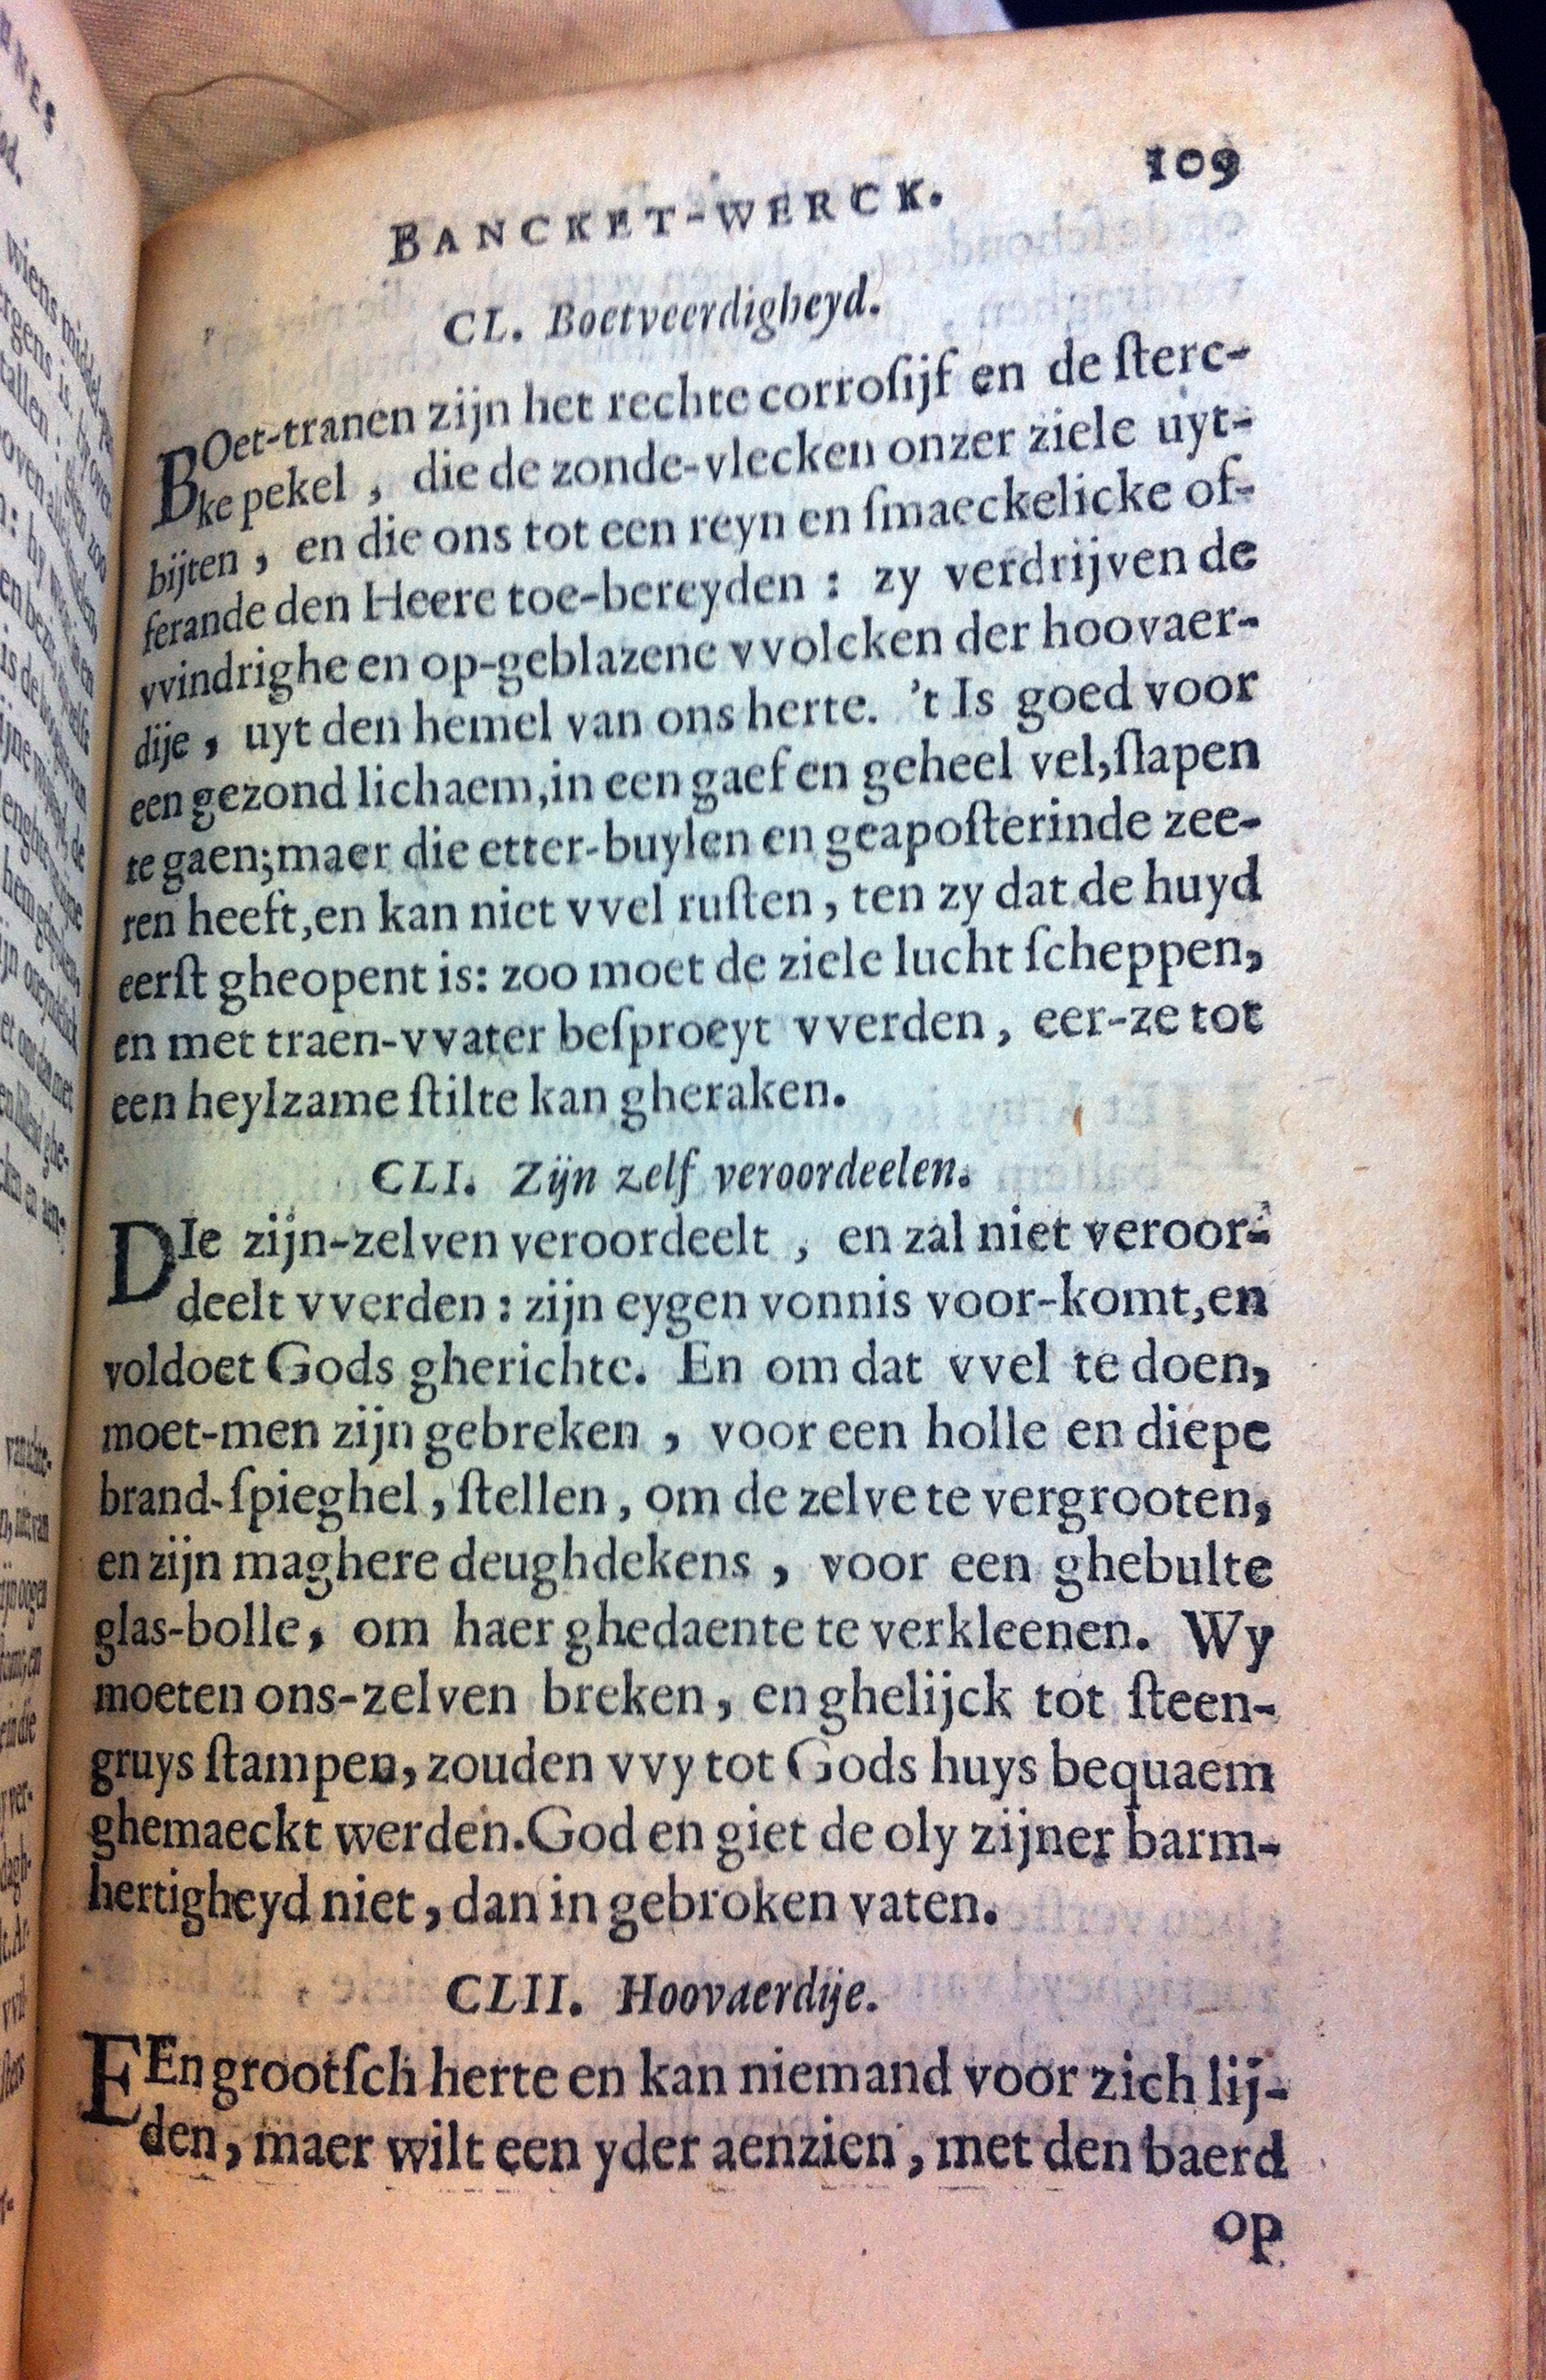 109
BANCKET-WERCK.
CL. Boetveerdigheyd.
BOet-tranen zijn het rechte corroſijf en de ſterc-
ke pekel, die de zonde-vlecken onzer ziele uyt-
bijten, en die ons tot een reyn en ſmaeckelicke of-
ferande den Heere toe-bereyden: zy verdrijven de
vvindrighe en op-geblazene vvolcken der hoovaer-
dije, uyt den hemel van ons herte. 't Is goed voor
een gezond lichaem, in een gaef en geheel vel, ſlapen
te gaen; maer die etter-buylen en geapoſterinde zee-
ren heeft, en kan niet vvel ruſten, ten zy dat de huyd
eerſt gheopent is: zoo moet de ziele lucht ſcheppen,
en met traen-vvater beſproeyt vverden, eer-ze tot
een heylzame ſtilte kan gheraken.
CLI. Zijn zelf veroordeelen.
DIe zijn-zelven veroordeelt, en zal niet veroor-
deelt vverden: zijn eygen vonnis voor-komt, en
voldoet Gods gherichte. En om dat vvel te doen,
moet-men zijn gebreken, voor een holle en diepe
brand-ſpieghel, ſtellen, om de zelve te vergrooten,
en zijn maghere deughdekens, voor een ghebulte
glas-bolle, om haer ghedaente te verkleenen. Wy
moeten ons-zelven breken, en ghelijck tot ſteen-
gruys ſtampen, zouden vvy tot Gods huys bequaem
ghemaeckt werden. God en giet de oly zijner barm-
hertigheyd niet, dan in gebroken vaten.
CLII. Hoovaerdije.
EEn grootſch herte en kan niemand voor zich lij-
den, maer wilt een yder aenzien, met den baerd
op